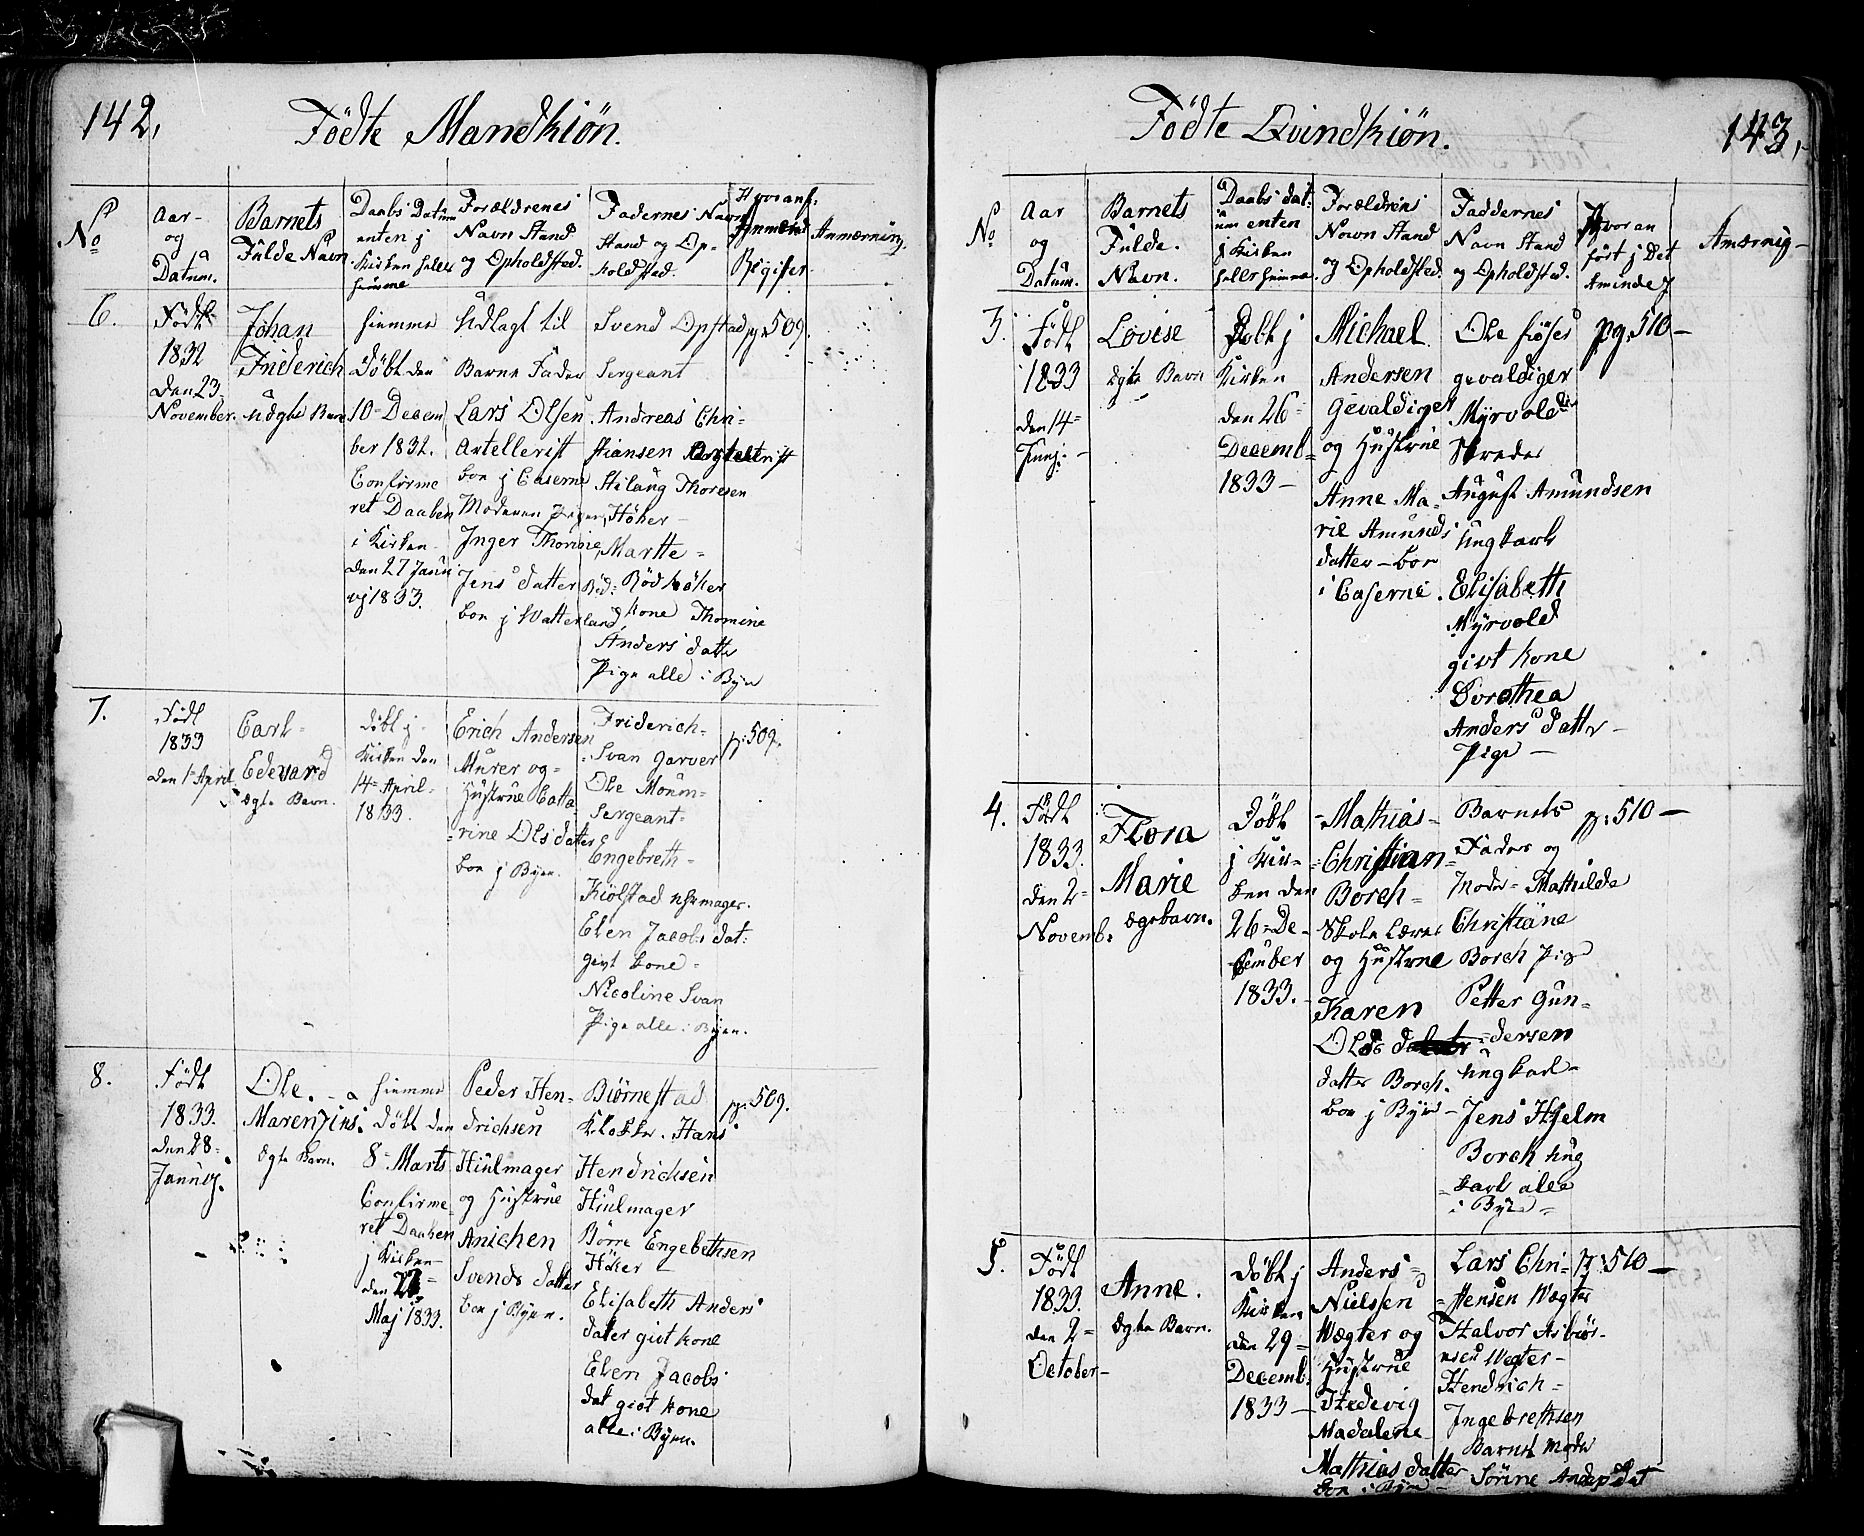 142,
Födte Mandkiøn.
No
Aar-
og
Datum.
Barnets
Fulde Navn
Daabs Datum
enten j
Kirken heller
hiemme
Forældrenes
Navn Stand
og Opholdsted.
Fadernes Navn
Stand og Op-
holdsted.
Hvor anf:
Anmærkning
6.
Födt
1832
den 23
November.
Johan
Friderich
uægte Barn
hiemme
Döbt den
10= Decem
ber 1832.
Confirme
ret Daaben
i Kirken
den 27 Janu
vj 1833.
Udlagt til
Barne Fader
Lars Olsen
Artellerist
boe j Caserne
Moderen Piger
Inger Thomine
Jens datter
boe j Watterland
Svend Opstad
Sergeant
Andreas Chri-
stiansen
Aslaug Thoresen
Höker
Marthe=
Rödhöker
kone Thomine
Anders datter
Pige alle i Byen
pg: 509.
7.
Födt
1833
den 1= April
Carl-
Edevard
Ægte Barn.
döbt j-
Kirken den
14= April-
1833.
Erich Andersen
Murer og=
Hustrue Catta
rine Olsdatter
boe j Byen.
Friderich-
Svan Garver
Ole Moum-
Sergeant-
Engebreth-
Kiölstad
Elen Jacobs dat:
givt kone-
Nicoline Svan
Pige alle i Byen.
p: 509.
8.
Födt
1833.
den 28-
Januvj.
Ole.
Marenius.
Ægte Barn.
hiemme
döbt den
8= Marts
Confirme-
ret Daaben
j Kirken-
den
Maj 1833.
Peder Hen-
drichsen
Hiulmager
og Hustrue
Anichen
Svends datter
boe j Byen.
Biørnestad
Klokker. Hans
Hendrichsen
Hiulmager
Börre Engebethsen
Höker
Elisabeth Anders
dater givt kone
Elen Jacobs
dat givt kone
alle i Byen.
pg: 509.
Födte Qvindkiön.
143,
No
Aar
og
Datum.
Barnets
Fulde.
Navn.
Daabs dat-
um enten
j Kirken
heller hiemme
Forældrens
Navn Stand
og Opholdsted.
Faddernes
Navn Stand
og Opholdsted.
Hvor an
fört j Det
Aminde
3.
Födt
1833
den 14=
Junj.
Lovise
ægte Barn
Döbt j
Kirken
den 26=
Decemb=
1833-
Michael
Andersen
Gevaldiger
og Hustrue
Anne Ma=
rie Amunds
datter- boe
i Caserne.
Ole
gevaldiger
Myrvold
Skreder
August Amundsen
ungkarl
Elisabeth
Myrvold
givt kone
Dorothea
Anders datter-
Pige-
pg. 510-
4.
Födt
1833.
den 2=
Novemb:
Flora
Marie
Ægtebarn.
döbt
j Kir-
ken den
26= De-
cember
1833.
Mathias-
Christian=
Borch-
Skole Lærer
og Hustrue
Karen
Olds
datter Borch.
boe j Byen-
Barnets
Fader og
Moder= Mathilde
Christiane
Borch Pige
Petter Gun-
dersen
ungkarl-
Jens Hjelm
Borch ung
karl alle
i Byen=
p: 510-
5.
Födt
1833.
den 2=
October-
Anne.
Ægte Barn.
döbt j
Kirken
den 29=
Decemb:
1833-
Anders=
Nielsen
Wægter og
Hustrue
Hedevig
Madalene-
Mathias datter
boe i Byen-
Lars Chri-
stensen Wægter
Halvor Asbiör-
nsen Wegter-
Hendrich=
Ingebrethsen
Barnets Moder
Sörine
p: 510-